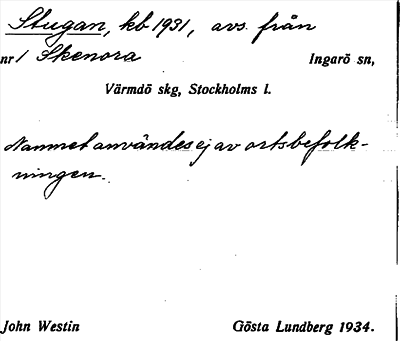 Stugan, kb 1931, avs. från
nr 1 Skenora Ingarö sn,
Värmdö skg, Stockholms l.
Namnet användes ej av ortsbefolk-
ningen.
John Westin Gösta Lundberg 1934.